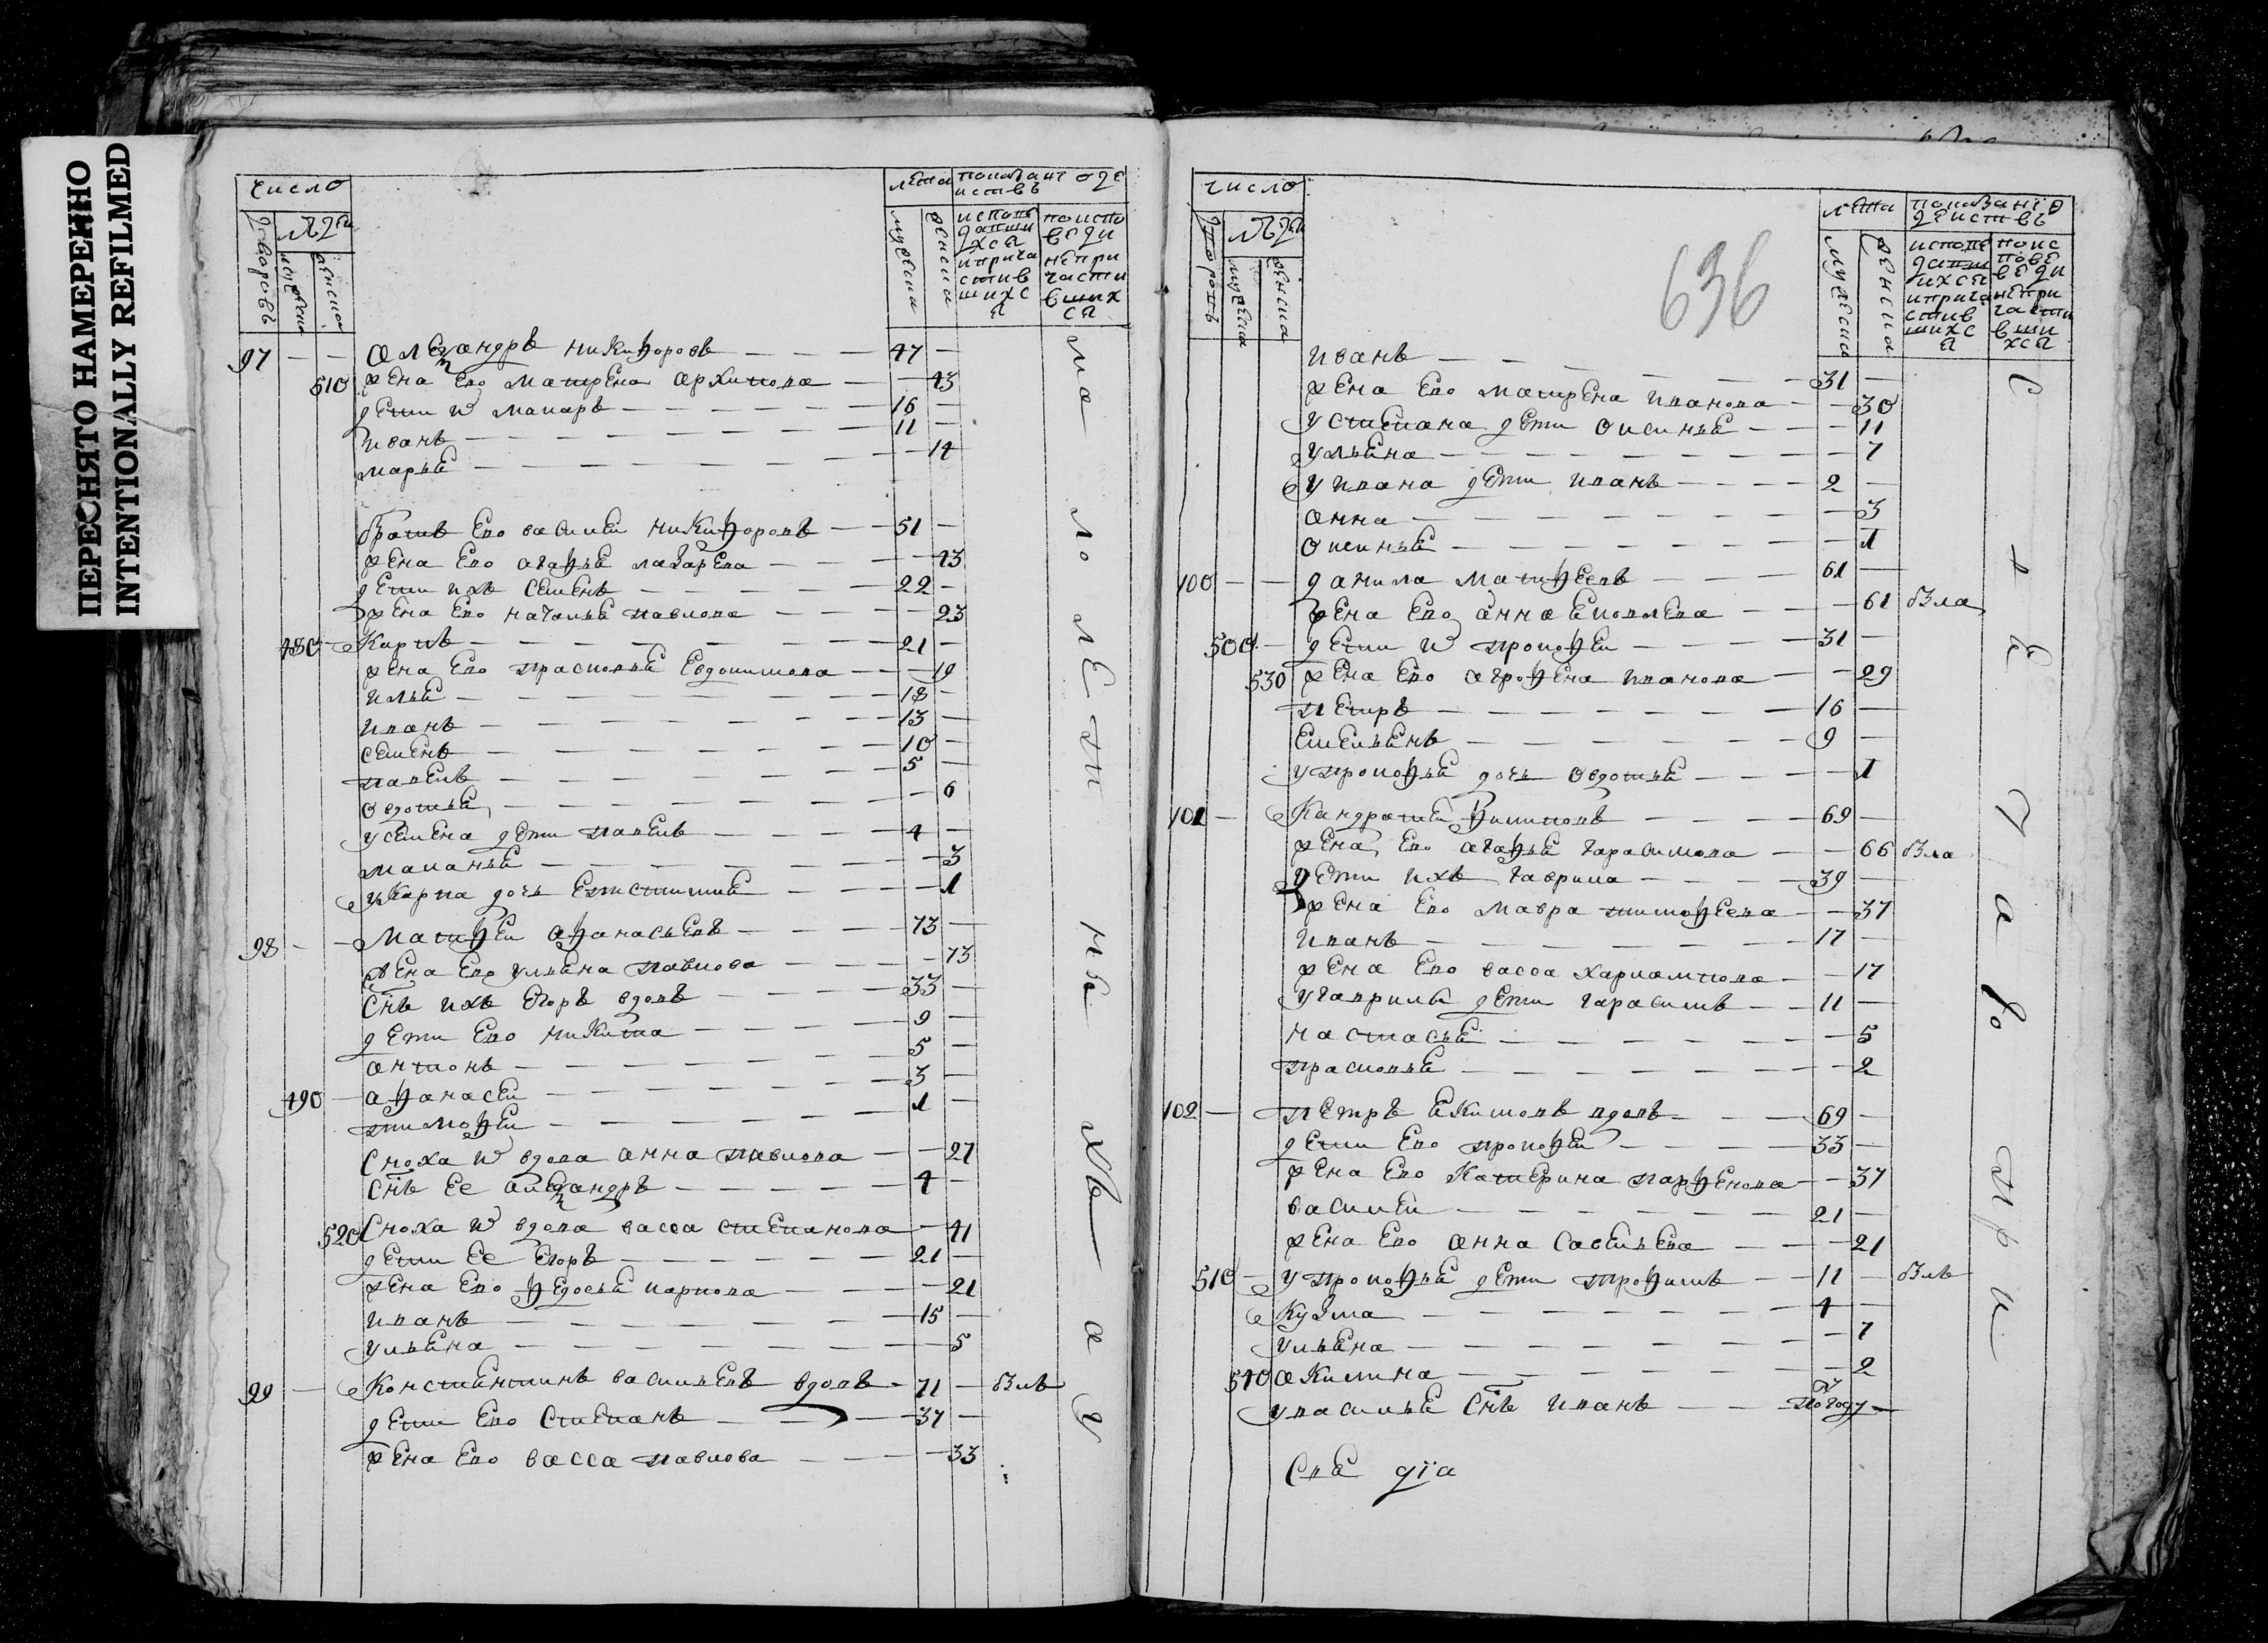 ПЕРЕСНЯТО НАМЕРЕННО
INTENTIONALLY REFILMED
число
лета показание о де
иствъ
дворовъ
людей
мужеска
женска
мужеска
женска
исповедавшихся и причастившихся
по исповеди не причастившихся
97 — — Александръ Никифоровъ — — — 47 —
510 жена его Матрена Архипова — — 43
дети их Макаръ — — — 16 —
Иванъ — — — 11 —
Марья — — — — 14
братъ его Василий Никифоровъ — — 51 —
жена его Агафья Лазарева — — — 43
дети ихъ Семенъ — — — 22 —
жена его Наталья Павлова — — — 23
480 — Карпъ — — — 21 —
жена его Прасковья Евдокимова — — 19
Илья — — — 18 —
Иванъ — — — 13 —
Семенъ — — — 10 —
Павелъ — — — 5 —
Овдотья — — — — 6
у Семена дети Павелъ — — — 4 —
Маланья — — — — 3
у Карпа дочь — — — — 1
98 — — Матфей Афанасьевъ — — — 73 —
жена его Ульяна Павлова — — — 73
снъ ихъ Егоръ вдовъ — — — 33 —
дети его Никита — — — 9 —
Антонъ — — — 5 —
490 — Афанасей — — — 3 —
Тимофей — — — 1 —
Сноха w вдова Анна Павлова — — 27
снъ ее Александръ — — — 4 —
520 Сноха w вдова Васса Степанова — 41
дети ее Егоръ — — — 21 —
жена его Федосья Карпова — — — 21
Иванъ — — — 15 —
Ульяна — — — — 5
99 — Констянтинъ Васильевъ вдовъ — 71 — былъ
дети его Степанъ — — — 37 —
жена его Васса Павлова — — — 33
малолетнихъ
число
лета
показание о
действъ
дворовъ
людей
мужеска
женска
мужеска
женска
исповедавшихся и причастившихся
по исповеди не причастившихся
636
Иванъ — — — 31 —
жена его Матрена Иванова — — 30
у Степана дети Оксинья — — — 11
Ульяна — — — — 7
у Ивана дети Иванъ — — — 2 —
Анна — — — — 3
Оксинья — — — — 1
100 — — Данила Матфеевъ — — — 61 —
жена его Анна Яковлева — — — 61 была
500 — дети w Прокофей — — — 31 —
530 жена его Агрофена Иванова — — 29
Петръ — — — 16 —
Емельянъ — — — 9 —
у Прокофья дочь Овдотья — — — 1
101 — Кандратей Филиповъ — — — 69 —
жена его Агафья Гарасимова — — 66 была
дети ихъ Гаврила — — — 39 —
жена его Мавра Тимофеева — — 37
Иванъ — — — 17 —
жена его Васса Харлампова — — 17
у Гаврилы дети Гарасимъ — — 11 —
Настасья — — — — 5
Прасковья — — — — 2
102 — Петръ Якимовъ вдовъ — — — 69 —
дети его Прокофей — — — 33 —
жена его Катерина Парфенова — — 37
Василей — — — 21 —
жена его Анна Савельева — — — 21
510 — у Прокофья дети Трофимъ — — 11 — былъ
Кузма — — — 4 —
Ульяна — — — — 7
540 Акилина — — — — 2
у Василья снъ Иванъ — — — полгоду —